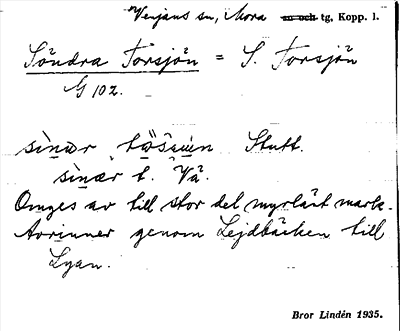 Venjans sn, Mora sn och tg, Kopp. l.
Söndra Torsjön = S. Torsjön
G 102.
Stutt.
sinær t. Vå.
Omges av till stor del myrlänt mark.
Avrinner genom Lejdbäcken till
Lyan.
Bror Lindén 1935.